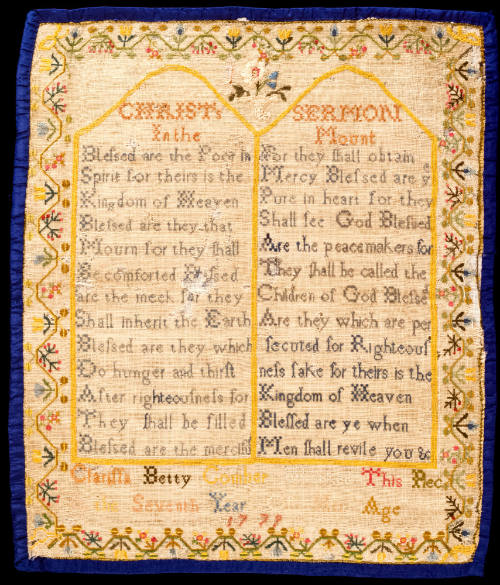 CHRISTs
In the
Bleſsed are the Poor in
Spirit for theirs is the
Kingdom of Heaven
Bleſsed are they that
Mourn for they ſhall
Be comforted Bleſsed
are the meek for they
Shall inherit the Earth
Bleſsed are they which
Do hunger and thirſt
After righteouſneſs for
They ſhall be filled
Bleſsed are the merciful
SERMON
Mount
For they ſhall obtain
Mercy Bleſsed are ye
Pure in heart for they
Shall ſee God Bleſsed
Are the peacemakers for
They ſhall be called the
Children of God Bleſse
Are they which are per
ſecuted for Righteouſ
neſs ſake for theirs is the
Kingdom of Heaven
Bleſſed are ye when
Men ſhall revile you &
Betty This
Seventh Year Age